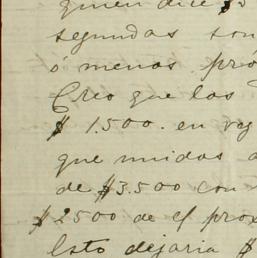 quien dice $
segundas son
ó menos pró
Creo que las
$ 1.500. en vez
que unidas a
de $3.500 con
$2500 de el prox
Esto dejaria $